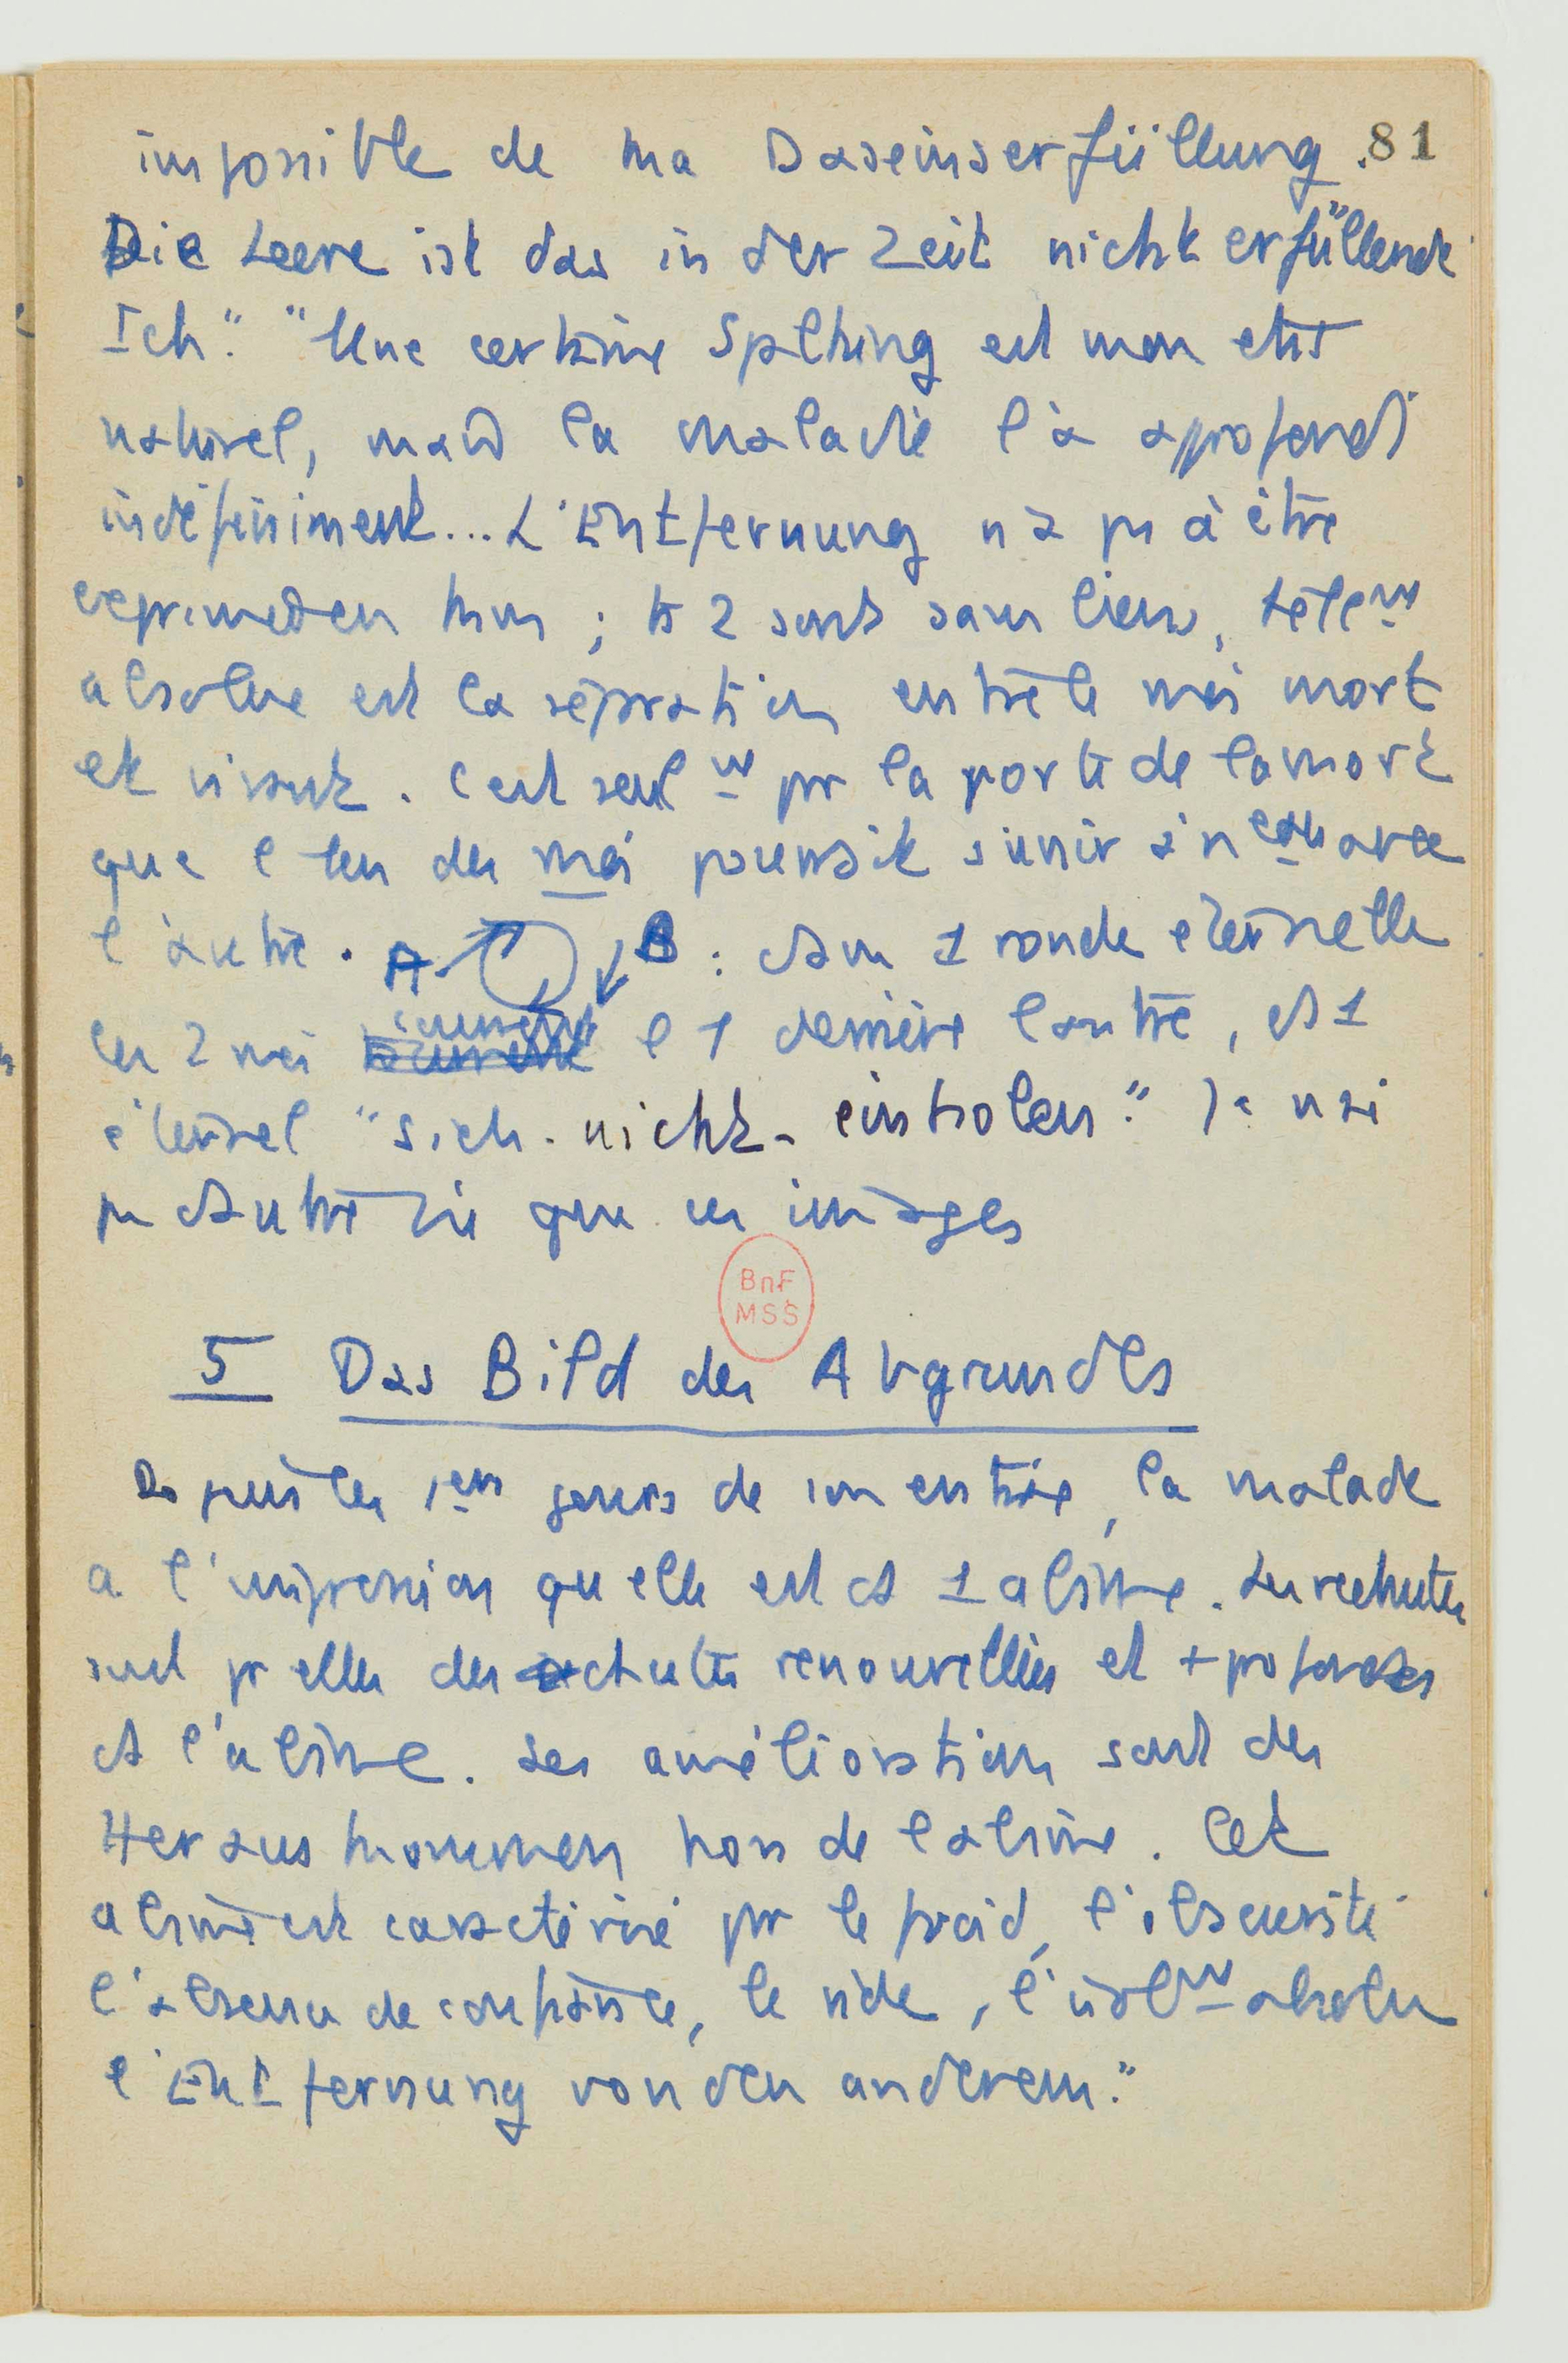 impossible de ma Daseinserfüllung. 81
Die Leere ist das in der Zeit nicht erfüllende
Ich". "Une certaine Spaltung est mon état
naturel, mais la maladie l'a approfondi
indéfiniment... L'Entfernung n'a pas à être
; les 2 sont sans lien, telem
absolue est la séparation entre le moi mort
et vivant. C'est seulm par la porte de la mort
que l'un des moi pourrait s'unir à nveau avec
l'autre. A B : dans 1 ronde éternelle
les 2 moi courent l'1 derrière l'autre, ds 1
éternel "sich-nicht-einholen". Je n'ai
pas d'autre vie que ces images
BnF
MSS
5 Das Bild des Abgrundes
Depuis les 1ers jours de son entrée, la malade
a l'impression qu'elle est ds 1 abîme. Les rechutes
sont pr elle des chutes renouvellées et + profondes
ds l'abîme. Les améliorations sont des
Herauskommen hors de l'abîme. Cet
abîme est caractérisé par le froid, l'obscurité
l'absence de confiance, le vide, l'isolm absolu
l'Entfernung von den anderem."